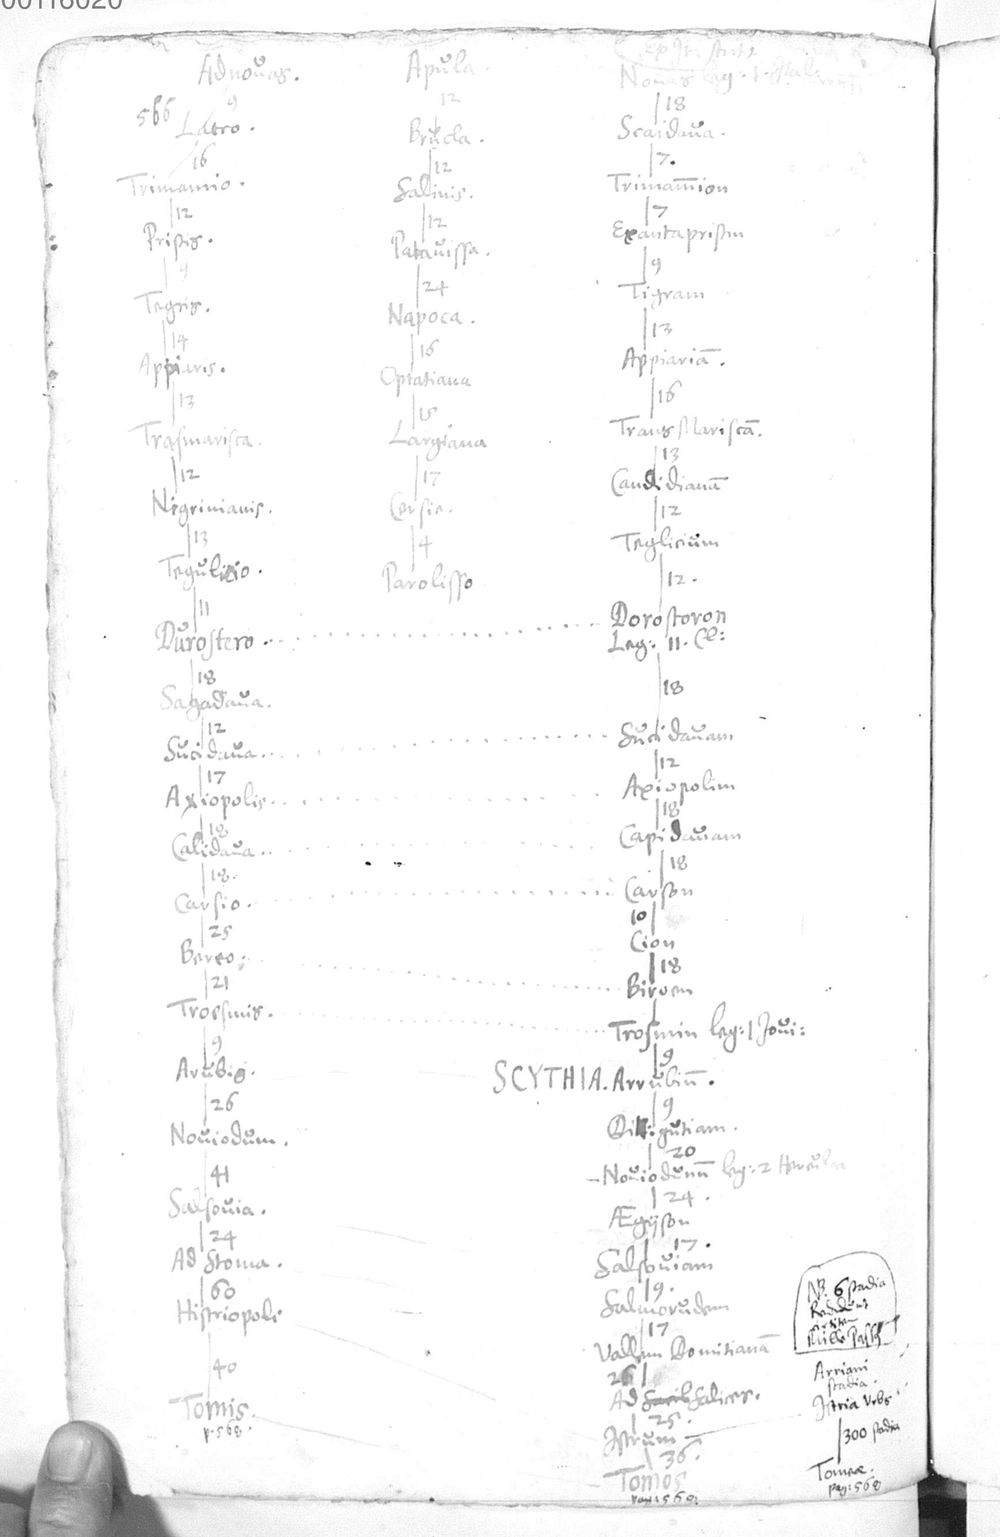 00116020
Adnouas.
9
566 Latro.
16
Trimamio.
12
Pristis.
9
Tegris.
14
Appiaris.
13
Trasmarisca.
12
Nigrinianis.
13
Tegulicio.
11
Durostero.
18
Sagadaua.
12
Sucidaua.
17
Axiopolis.
18
Calidaua.
18.
Carsio.
25
Bereo.
21
Trosmis.
9
Arubio.
26
Nouiodum.
41
Salsouia.
24
Ad Stoma.
60
Histriopoli
40
Tomis.
p. 568.
Apula.
12
Brucla.
12
Salinis.
12
Patauissa.
24
Napoca.
16
Optatiana
15
Largiana
17
Cersie.
4
Parolisso
Nouas leg. 1. Ital.
18
Scaidaua.
7.
Trimam̄ion
7
Exantapristin
9
Tigram
13
Appiariā.
16
Trans Mariscā.
13
Candidianā
12
Teglicium
12.
Dorostoron
Leg: 11. Cl:
18
Sucidauam
12
Axiopolim
18
Capidauam
18
Carson
10
Cion
18
Biroem
Trosmin leg: 1 Joui:
9
SCYTHIA. Arrubiū.
9
gutiam.
20
Nouiodunū leg: 2 Herculea
24.
Ægyson
17.
Salsouiam
19.
Salmorudem
17
Vallem Domitianā
26
Ad Salices.
25.
Istrum
36.
Tomos
pag: 568.
NB. 6 stadia
Reddunt
Mille pass
Arriani
stadia.
Istria Vrbs.
300 stadia
Tomeae.
pag: 568